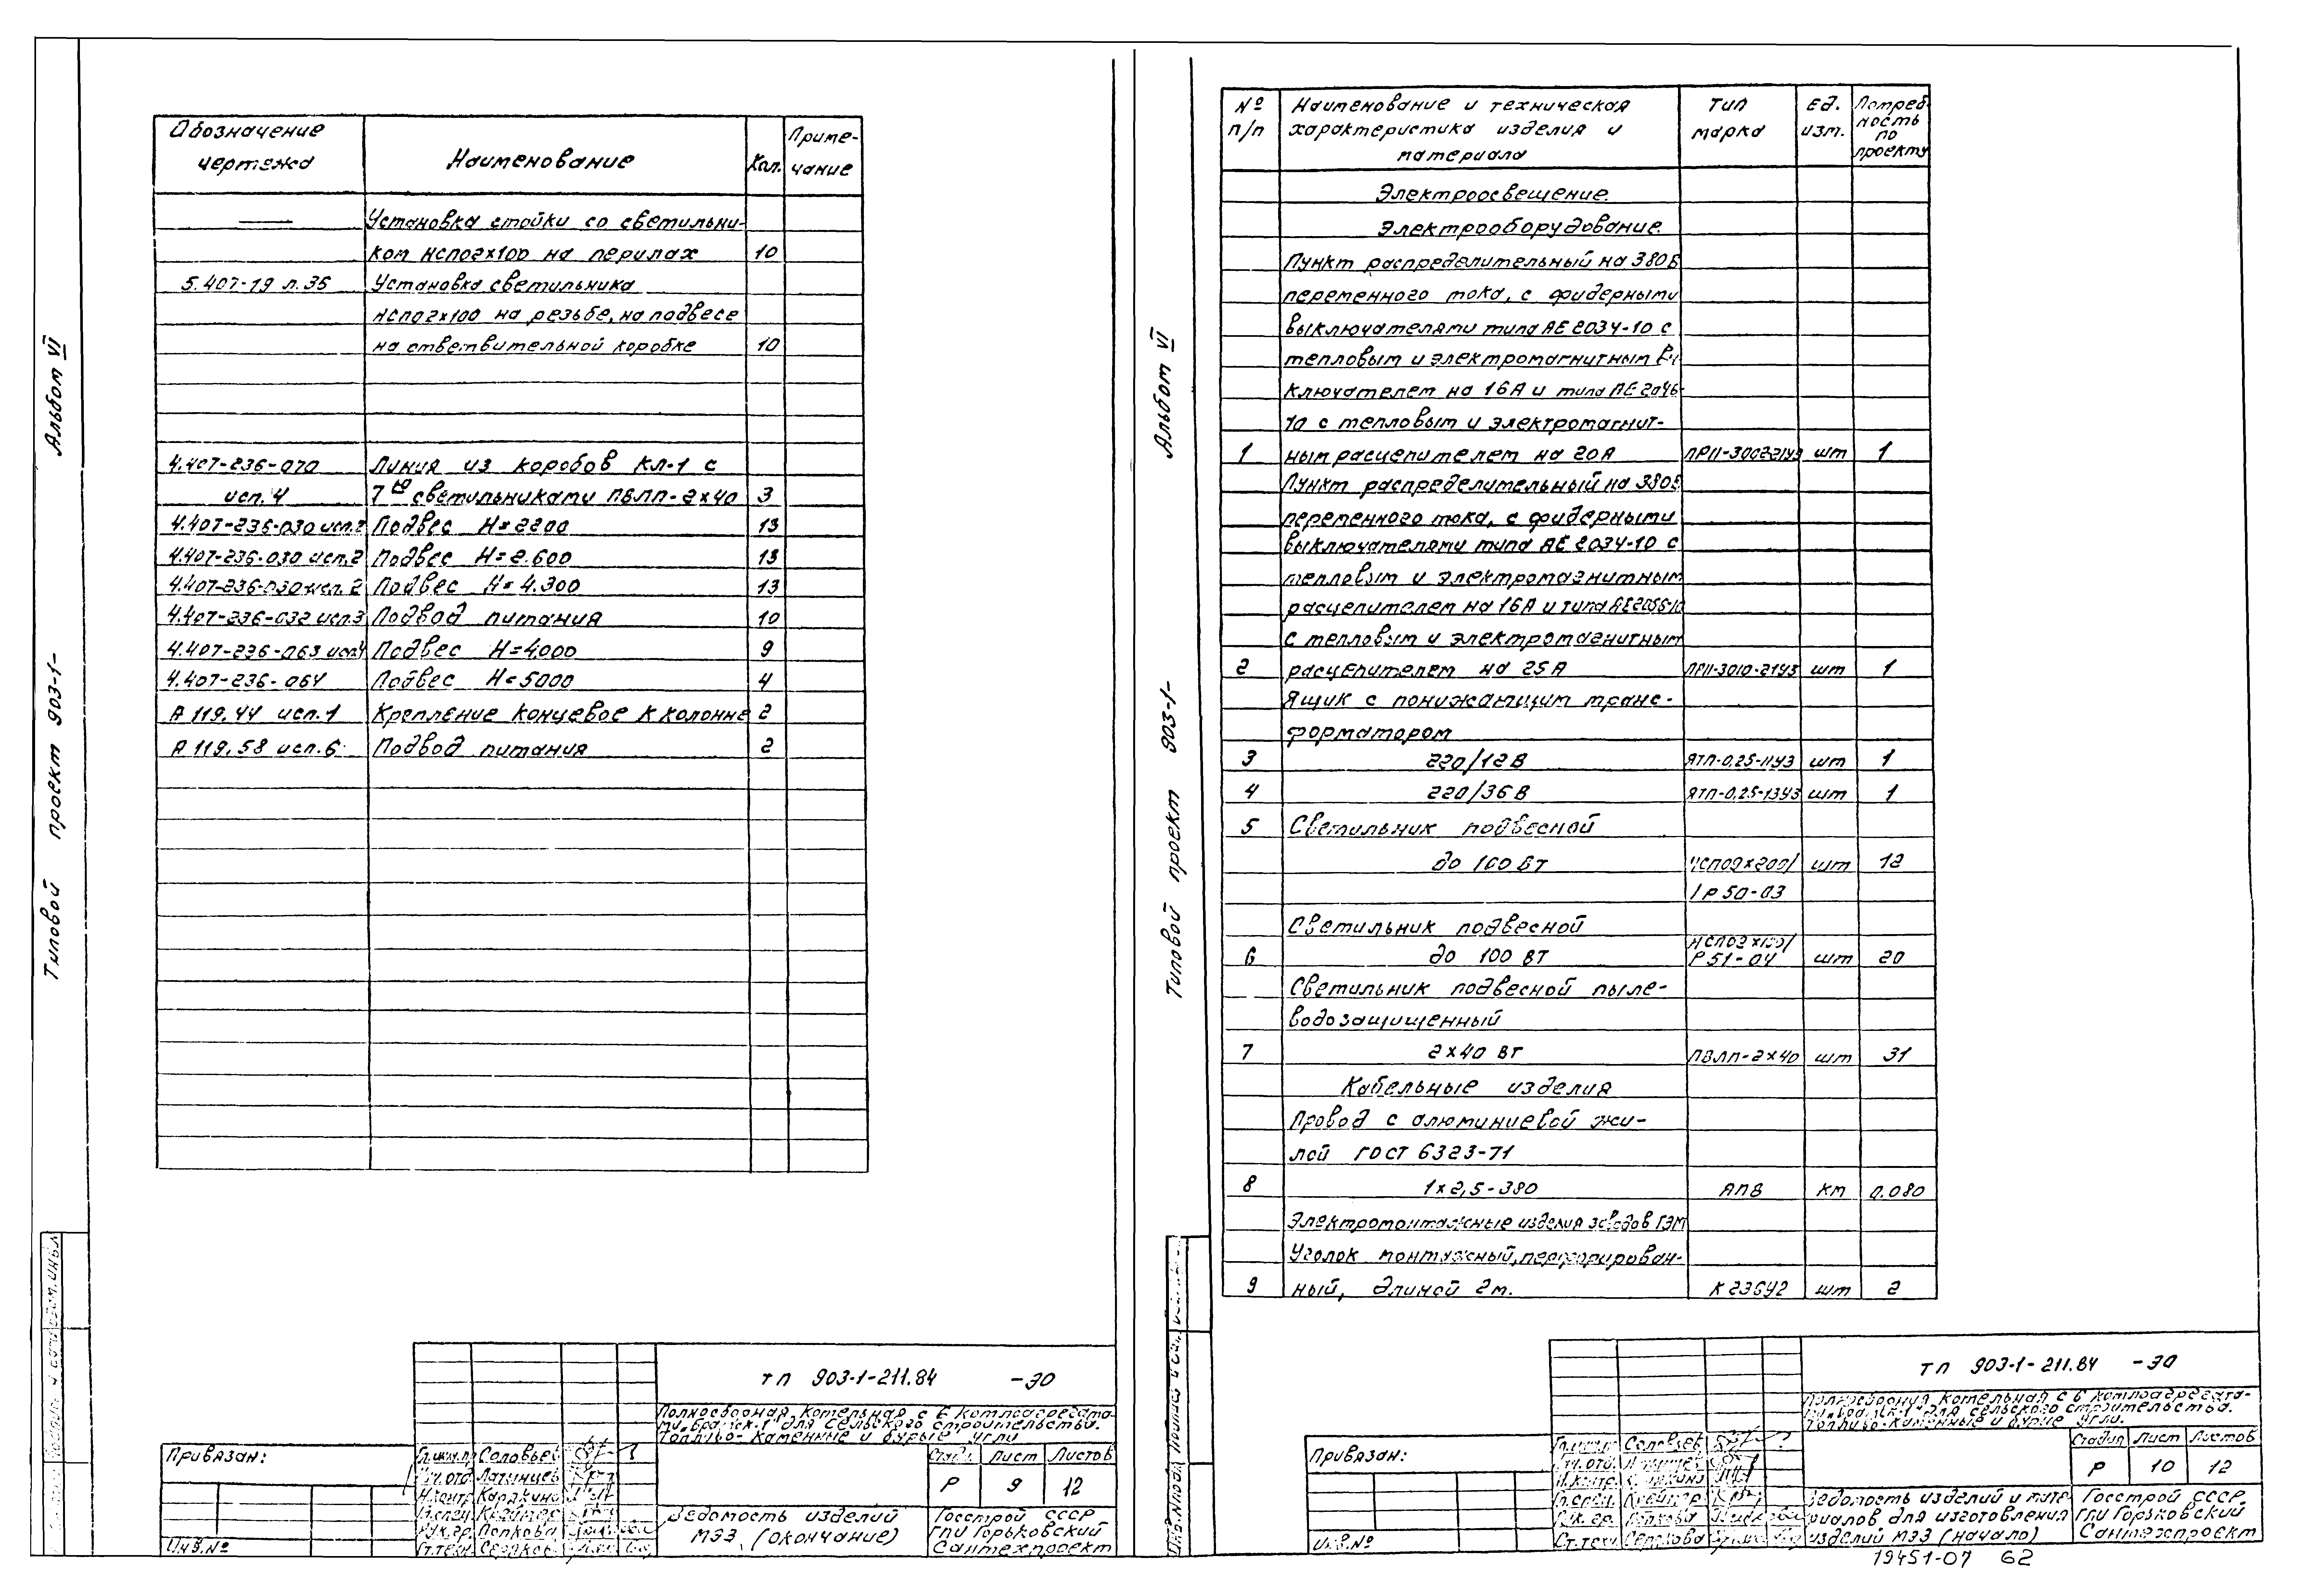 Альбом VI
Типовой проект 903-1-
Обозначение чертежа
Наименование
Кол.
Приме-
чание
Установка стойки со светильни-
ком НСП02х100 на перилах 10
5.407-19 л.35 Установка светильника
НСП02х100 на резьбе, на подвесе
на ответвительной коробке 10
4.407-236-020 Линия из коробов КЛ-1 с
исп.4 7ю светильниками ПВЛП-2х40 3
4.407-236-030 исп.2 Подвес Н=2200 13
4.407-236-030 исп.2 Подвес Н=2.600 13
4.407-236-030 исп.2 Подвес Н=4.300 13
4.407-236-032 исп.3 Подвод питания 10
4.407-236-063 Подвес Н=4000 9
4.407-236-064 Подвес Н=5000 4
А 119.44 исп.1 Крепление концевое к колонне 2
А 119.58 исп.6 Подвод питания 2
Привязан:
Инв.№
Соловьев
Латинцев
Попкова
ТП 903-1-211.84 -ЭО
Полносборная котельная с 6 котлоагрегата-
ми „Братск-1" для сельского строительства.
Топливо-каменные и бурые угли
Стадия Лист Листов
Р 9 12
Ведомость изделий
МЭЗ (окончание)
Госстрой СССР
ГПИ Горьковский
Сантехпроект
Альбом VI
Типовой проект 903-1-
№ п/п
Наименование и техническая
характеристика изделия и
материала
Тип марка
Ед. изм.
Потреб-
ность
по
проекту
Электроосвещение.
Электрооборудование
Пункт распределительный на 380В
переменного тока, с фидерными
выключателями типа АЕ 2034-10 с
тепловым и электромагнитным
ключателем на 16А и типа АЕ 2046-
10 с тепловым и электромагнит-
1 ным расцепителем на 20А шт 1
Пункт распределительный на 380В
переменного тока, с фидерными
выключателями типа АЕ 2034-10 с
тепловым и электромагнитным
расцепителем на 16А и типа
с тепловым и электромагнитным
2 расцепителем на 25А ПР11-3010-21У3 шт 1
Ящик с понижающим транс-
форматором
3 220/12 В ЯТП-0,25-11У3 шт 1
4 220/36 В ЯТП-0,25-13У3 шт 1
5 Светильник подвесной
до 100 Вт шт 12
IP 50-03
Светильник подвесной
6 до 100 Вт НСП02х100/
Р51-04 шт 20
Светильник подвесной пыле-
водозащищенный
7 2х40 Вт ПВЛП-2х40 шт 31
Кабельные изделия
Провод с алюминиевой жи-
лой ГОСТ 6323-71
8 1х2,5-380 АПВ км 0.080
Электромонтажные изделия заводов ГЭМ
Уголок монтажный, перфорирован-
9 ный, длиной 2м. К236У2 шт 2
Привязан:
Инв.№
Соловьев
Попкова
ТП 903-1-211.84 -ЭО
Полносборная котельная с 6 котлоагрегата-
ми „Братск-1" для сельского строительства.
Топливо-каменные и бурые угли.
Стадия Лист Листов
Р 10 12
Ведомость изделий и мате-
риалов для изготовления
изделий МЭЗ (начало)
Госстрой СССР
ГПИ Горьковский
Сантехпроект
19451-07 62